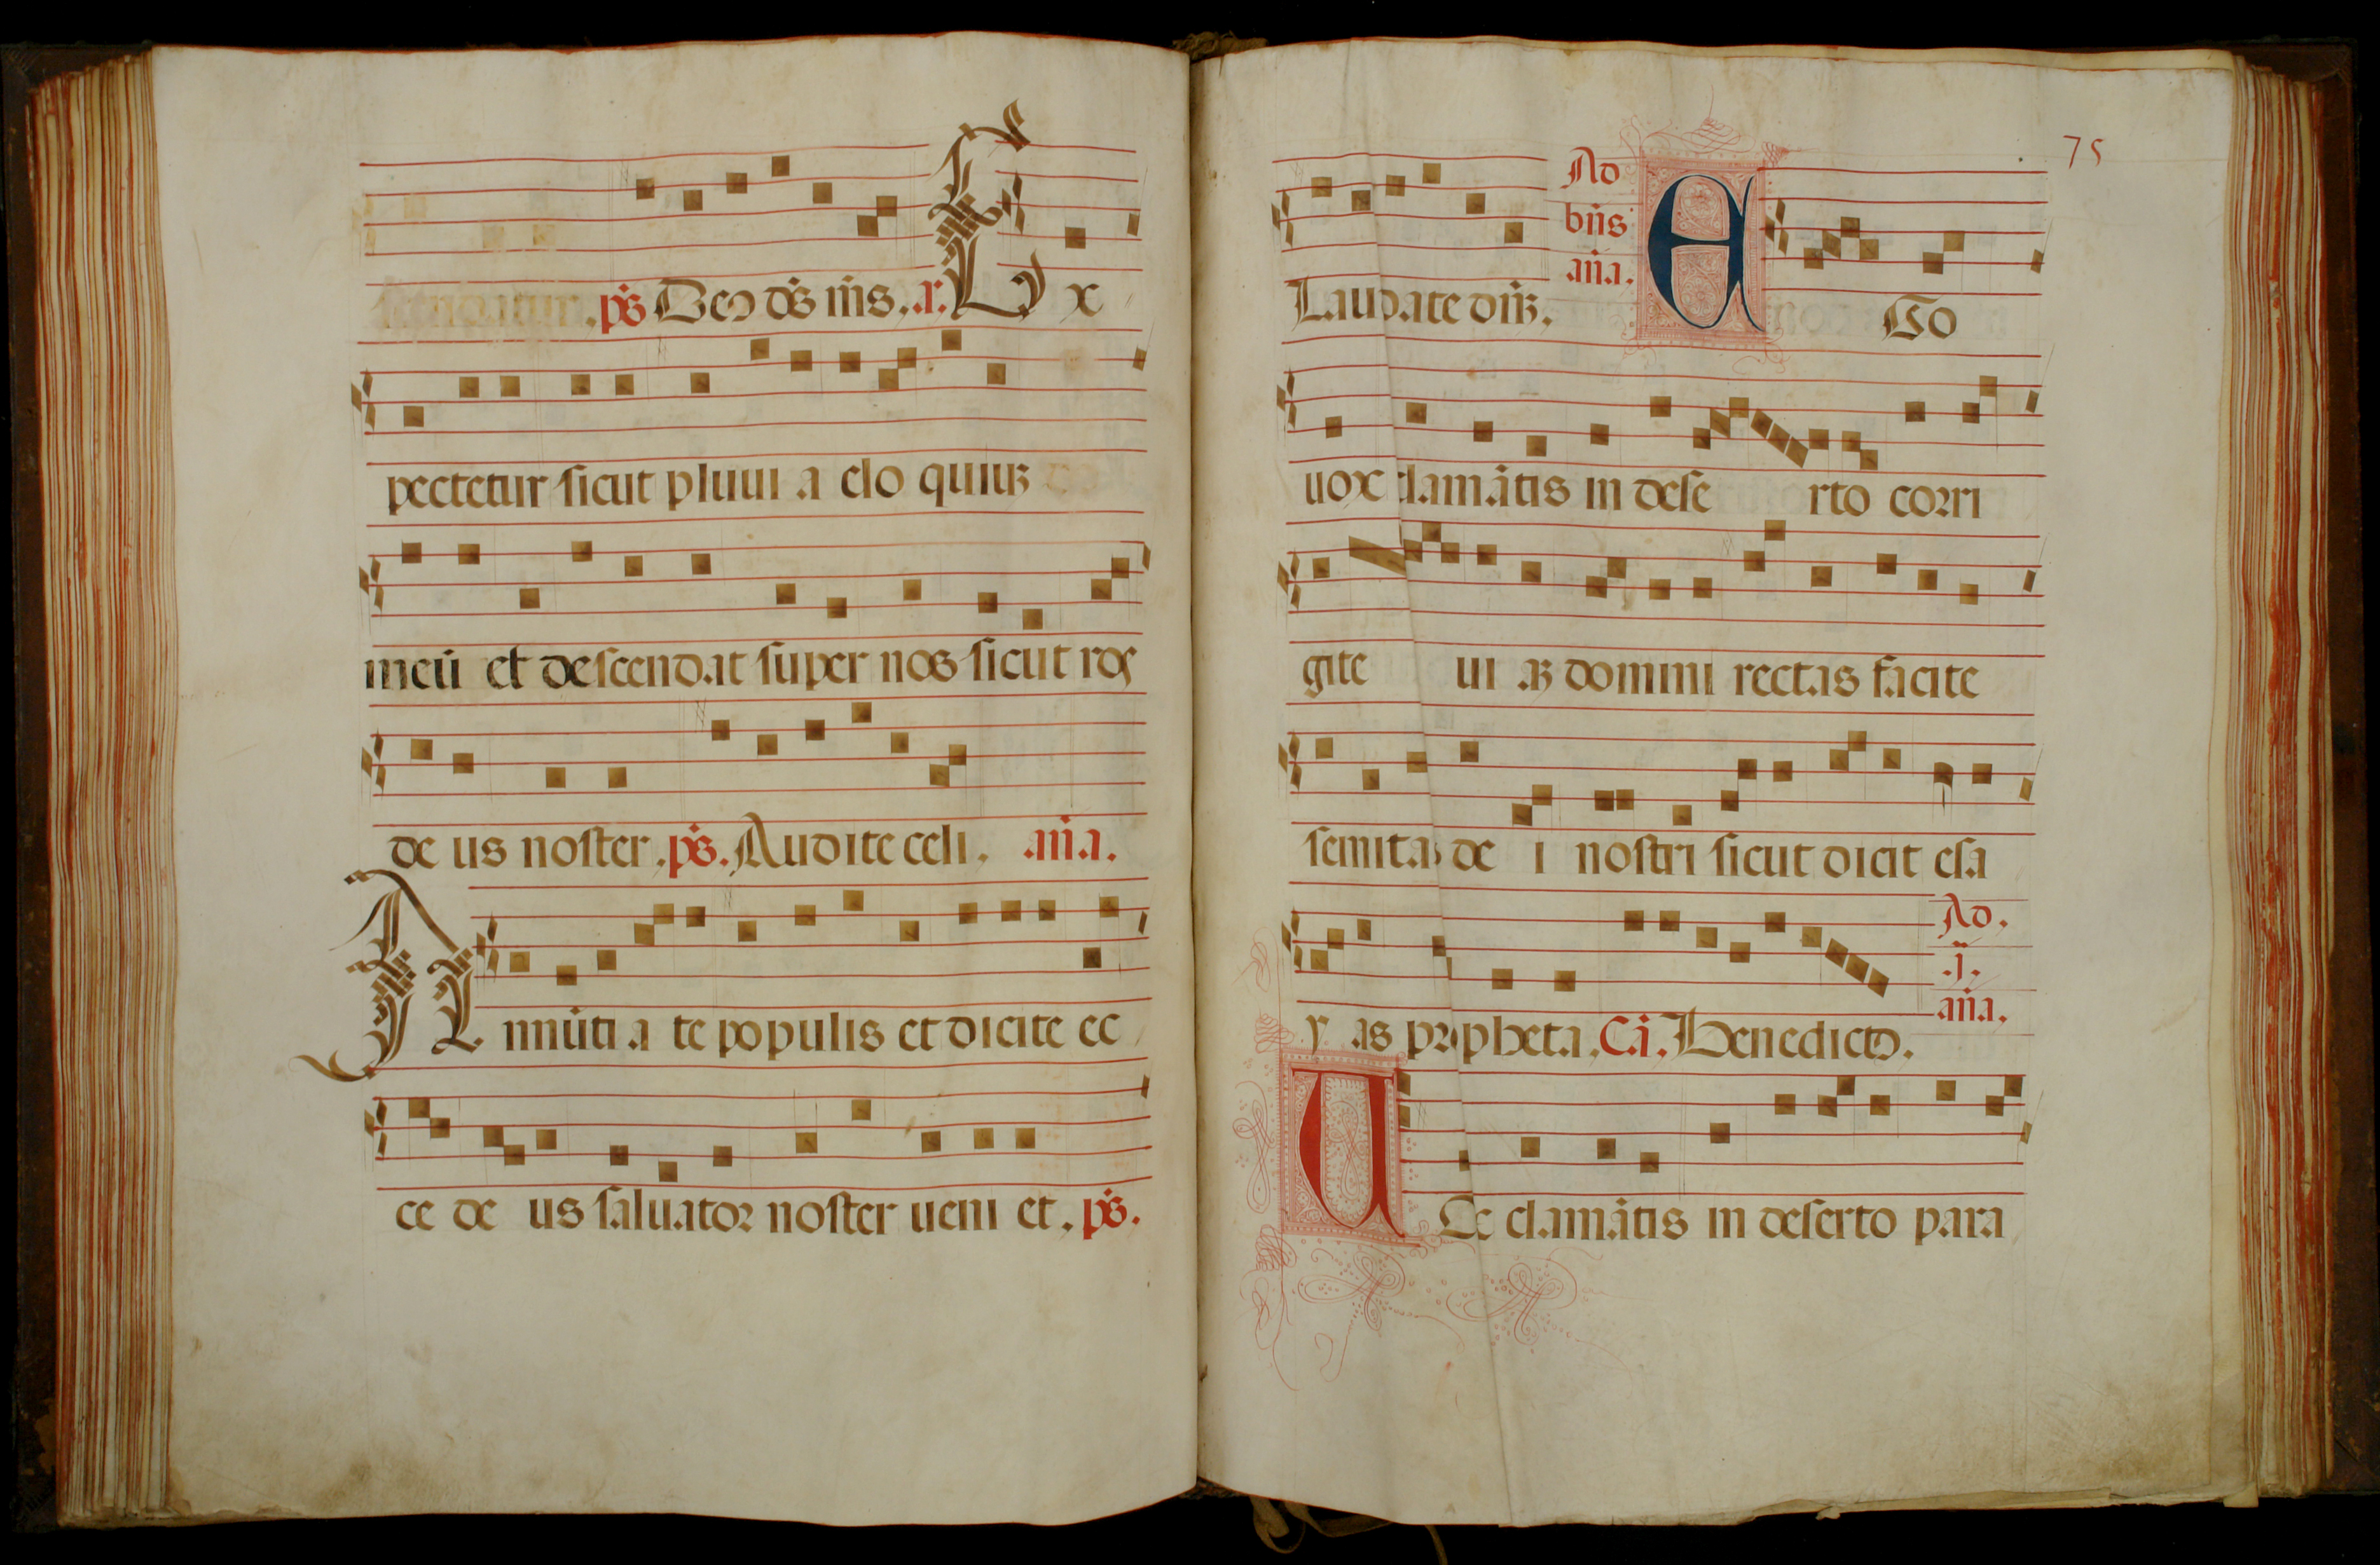 .ps Deus ds ms. .r. Ex
pectetur sicut pluui a elo quiuʒ
meū et descendat super nos sicut ros
de us noster .ps. Audite celi. an̄a.
Annūti a te populis et dicite ec
ce de us saluator noster ueni et. ps.
75
Laudate dn̄ʒ. Ad bn̄s an̄a. Ego
uox clamātis in dese rto corri
gite ui aʒ domini rectas facite
semitas de i nostri sicut dicit esa
y as propheta. Ca. Benedicto. Ad. .j. an̄a.
Uoc clamātis in deserto para